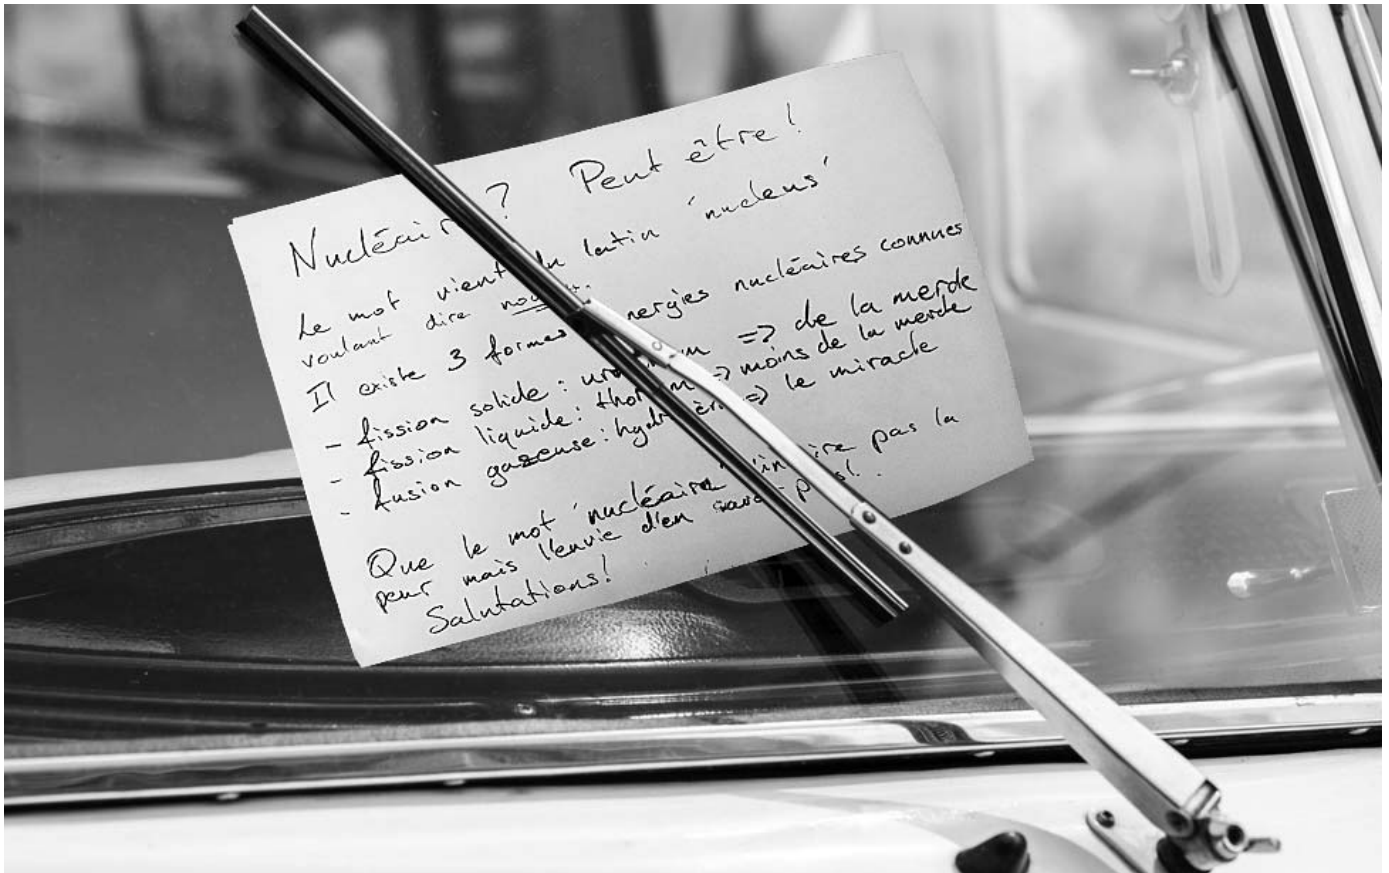 Nucléair ? Peut être!
Le mot vient du latin 'nucleus'
voulant dire
Il existe 3 formes nergies nucléaires connues
- fission solide : => de la merde
- fission liquide : => moins de la merde
- fusion gazeuse : => le miracle
Que le mot 'nucléaire' pas la
peur mais l'envie d'en
Salutations!